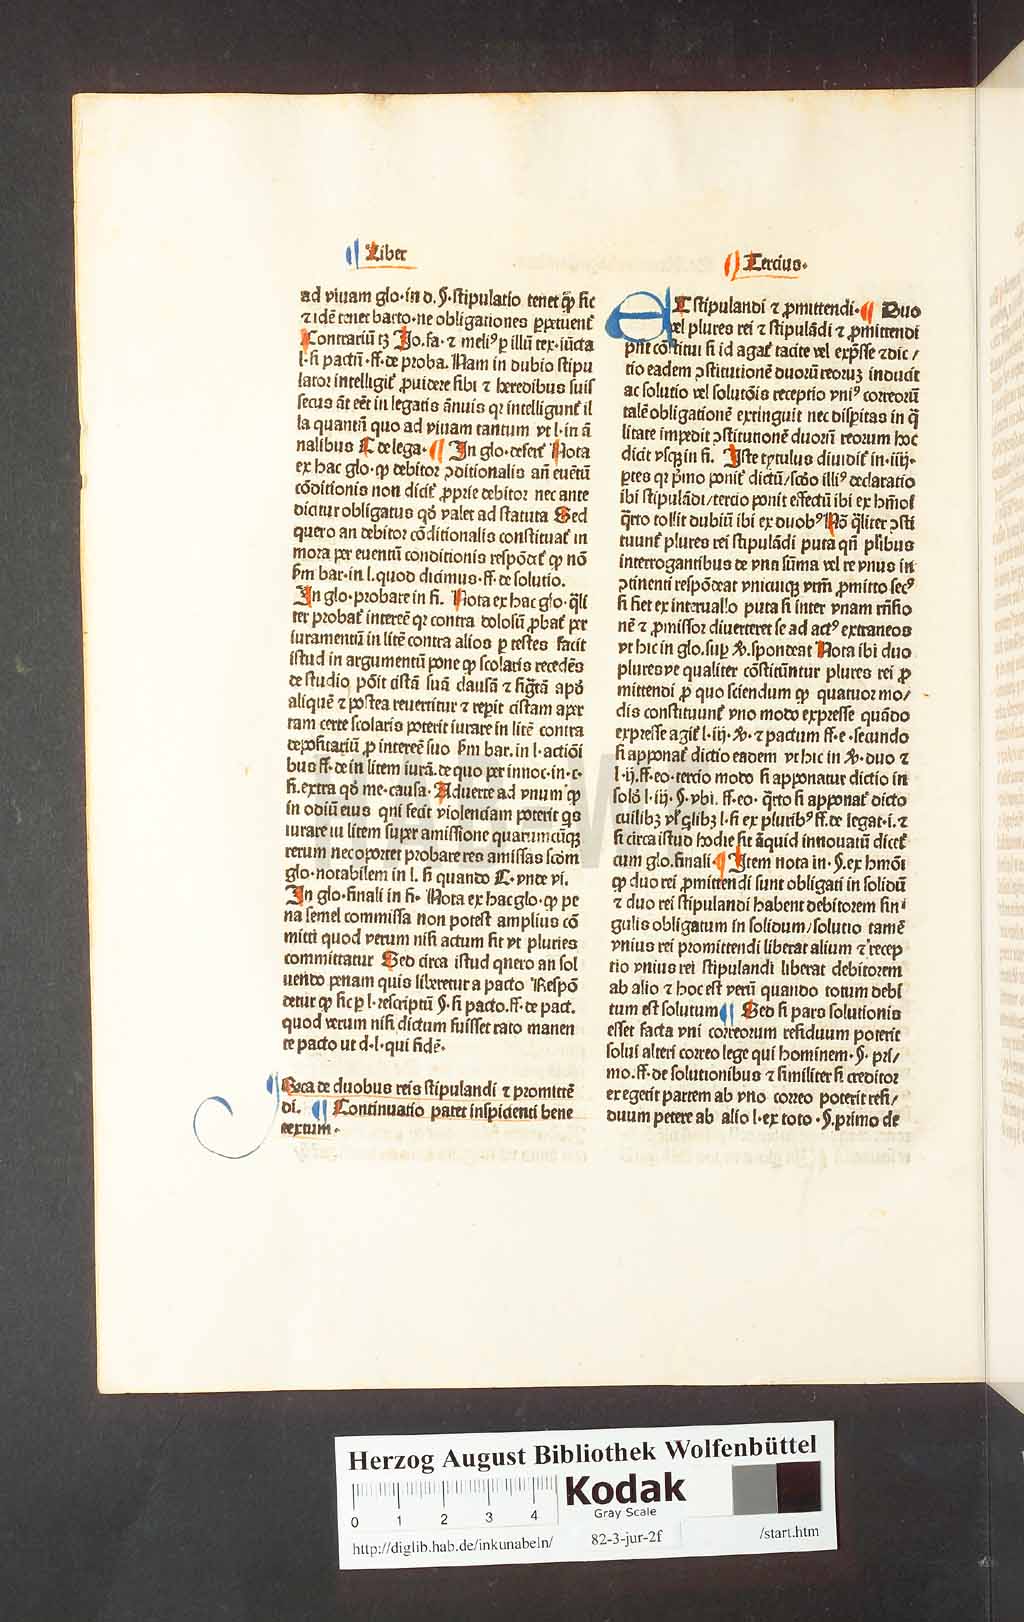 Liber
ad vitam glo. in d. §. stipulatio tenet qꝫ sic
⁊ idē tenet barto. ne obligationes ꝑpetuent᷑
Contrariū tꝫ Jo. fa. ⁊ meliꝰ ꝑ illū tex. iūcta
l. si pactū. ff. de proba. Nam in dubio stipu
lator intelligit᷑ ꝓuidere sibi ⁊ heredibus suis
secus āt eēt in legatis ānuis qꝛ intelligunt᷑ il
la quantū quo ad vitam tantum vt l. in ā
nalibus C de lega. In glo. defert᷑ Nota
ex hac glo. ꝙ debitor ↄditionalis añ euētū
cōditionis non dicit᷑ ꝓprie debitor nec ante
dicitur obligatus qḋ valet ad statuta Sed
quero an debitor cōditionalis constituat᷑ in
mora per euentū conditionis respōdet᷑ ꝙ nō
ẜm bar. in l. quod dicimus. ff. de solutio.
In glo. probare in fi. Nota ex hac glo. q̄li
ter probat᷑ intereē qꝛ contra dolosū ꝓbat᷑ per
iuramentū in litē contra alios ꝑ testes facit
istud in argumentū pone ꝙ scolaris recedēs
de studio pōit cistā suā clausā ⁊ sig̃tā apḋ
aliquē ⁊ postea reuertitur ⁊ repit cistam aper
tam certe scolaris poterit iurare in litē contra
depositariū ꝓ intereē suo ẜm bar. in l. actiōi
bus ff. de in litem iurā. de quo per innoc. in. c.
fi. extra qḋ me. causa. Aduerte ad vnum ꝙ
in odiū eius qui fecit violenciam poterit qs
iurare in litem super amissione quarumcūqꝫ
rerum nec oportet probare res amissas scōm
glo. notabilem in l. si quando C. vnde vi.
In glo. finali in fi. Nota ex hac glo. ꝙ pe
na semel commissa non potest amplius cō
mitti quod verum nisi actum sit vt pluries
committatur Sed circa istud quero an sol
uendo penam quis liberetur a pacto Respō
detur ꝙ sic ꝑ l. rescriptū §. si pacto. ff. de pact.
quod verum nisi dictum fuisset rato manen
te pacto ut d. l. qui fidē.
Jeca de duobus reis stipulandi ⁊ promittē
di. Continuatio patet inspicienti bene
textum.
Tercius.
ET stipulandi ⁊ ꝓmittendi. Duo
vel plures rei ⁊ stipulādi ⁊ ꝓmittendi
pn̄t cōstitui si id agat᷑ tacite vel exp̄sse ⁊ dic/
tio eadem ↄstitutionē duorū reoruꝫ inducit
ac solutio vel solutōis receptio vniꝰ correorū
talē obligationē extinguit nec disp̄itas in q̄
litate impedit ↄstitutionē duorū reorum hoc
dicit vsqꝫ in fi. Iste tytulus diuidit᷑ in. iiij.
ꝑtes qꝛ p̄mo ponit᷑ dictū/ scḋo illiꝰ declaratio
ibi stipulādi/ tercio ponit effectū ibi ex hm̄oī
q̄rto tollit dubiū ibi ex duobꝰ Nō q̄liter ↄsti
tuunt᷑ plures rei stipulādi puta qn̄ pl̄ibus
interrogantibus de vna sūma vel re vnus in
ↄtinenti respōdeat vnicuiqꝫ vtrū ꝓmitto secꝰ
si fiet ex interuallo puta si inter vnam rn̄sio
nē ⁊ ꝓmissor diuerteret se ad actꝰ extraneos
vt hic in glo. sup ꝟ. spondeat Nota ibi duo
pluresve qualiter cōstitūntur plures rei ꝓ
mittendi ꝓ quo sciendum ꝙ quatuor mo/
dis constituunt᷑ vno modo expresse quādo
expresse agit᷑ l. iij. ꝟ. ⁊ pactum ff. e. secundo
si apponat᷑ dictio eadem vt hic in ꝟ. duo ⁊
l. ij. ff. eo. tercio modo si apponatur dictio in
solḋ l. iij. §. vbi. ff. eo. q̄rto si apponat᷑ dicto
cuilibꝫ vl̓ q̄libꝫ l. si ex pluribꝰ ff. de legat. i. ⁊
si circa istud hodie sit āquid innouatū dicet᷑
cum glo. finali Item nota in. §. ex hmōi
ꝙ duo rei ꝓmittendi sunt obligati in solidū
⁊ duo rei stipulandi habent debitorem sin
gulis obligatum in solidum/ solutio tamē
vnius rei promittendi liberat alium ⁊ recep
tio vnius rei stipulandi liberat debitorem
ab alio ⁊ hoc est verū quando totum debi
tum est solutum Sed si pars solutionis
esset facta vni correorum residuum poterit
solui alteri correo lege qui hominem. §. pri/
mo. ff. de solutionibus ⁊ similiter si creditor
exegerit partem ab vno correo poterit resi/
duum petere ab alio l. ex toto. §. primo de
HAB-W
Herzog August Bibliothek Wolfenbüttel
0 1 2 3 4
Kodak
Gray Scale
http://diglib.hab.de/inkunabeln/ 82-3-jur-2f /start.htm